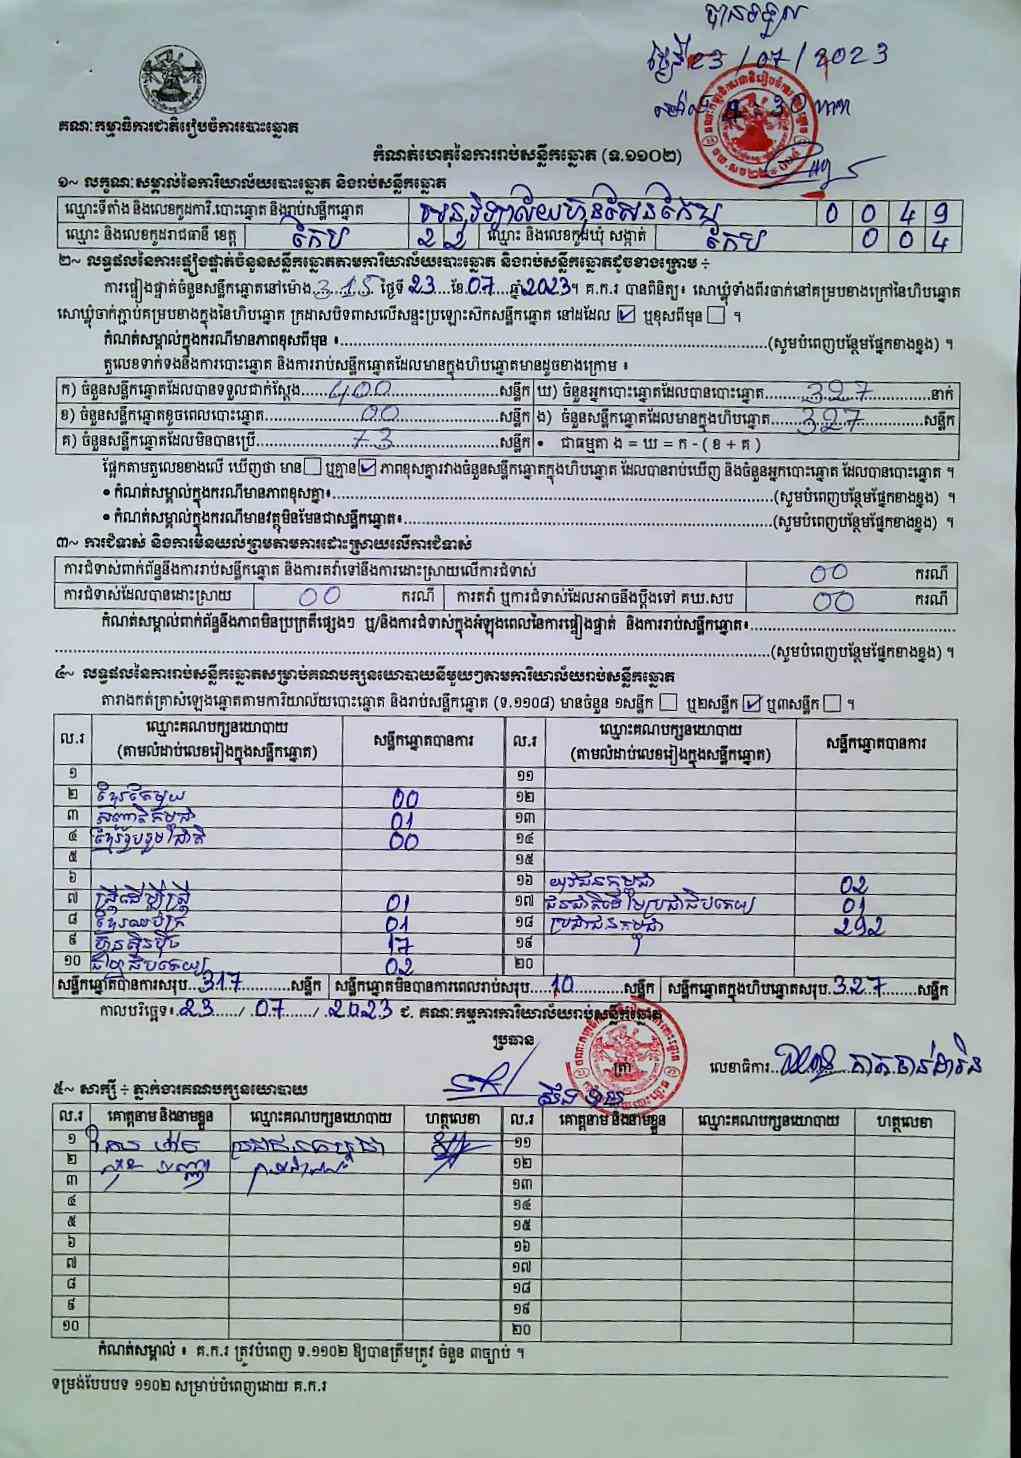 បានទទួល
ថ្ងៃទី 23/07/2023
ម៉ោង 4:30 នាទី
គណៈកម្មាធិការជាតិរៀបចំការបោះឆ្នោត
កំណត់ហេតុនៃការរាប់សន្លឹកឆ្នោត (ទ.១១០២)
១~ លក្ខណៈសម្គាល់នៃការិយាល័យបោះឆ្នោត និងរាប់សន្លឹកឆ្នោត
ឈ្មោះទីតាំង និងលេខកូដការិ.បោះឆ្នោត និងរាប់សន្លឹកឆ្នោត អនុវិទ្យាល័យហ៊ុនសែនកែប 0 0 4 9
ឈ្មោះ និងលេខកូដរាជធានី ខេត្ត កែប 2 2 ឈ្មោះ និងលេខកូដឃុំ សង្កាត់ កែប 0 0 4
២~ លទ្ធផលនៃការផ្ទៀងផ្ទាត់ចំនួនសន្លឹកឆ្នោតតាមការិយាល័យបោះឆ្នោត និងរាប់សន្លឹកឆ្នោតដូចខាងក្រោម ÷
ការផ្ទៀងផ្ទាត់ចំនួនសន្លឹកឆ្នោតនៅម៉ោង 3:15 ថ្ងៃទី 23 ខែ 07 ឆ្នាំ 2023។ គ.ក.រ បានពិនិត្យ៖ សោឃ្លុំទាំងពីរចាក់នៅគម្របខាងក្រៅនៃហិបឆ្នោត
សោឃ្លុំចាក់ភ្ជាប់គម្របខាងក្នុងនៃហិបឆ្នោត ក្រដាសបិទពាសលើសន្ទះប្រឡោះសឹកសន្លឹកឆ្នោត នៅដដែល ☑ ឬខុសពីមុន ☐ ។
កំណត់សម្គាល់ក្នុងករណីមានភាពខុសពីមុន ៖ (សូមបំពេញបន្ថែមផ្នែកខាងខ្នង) ។
តួលេខទាក់ទងនឹងការបោះឆ្នោត និងការរាប់សន្លឹកឆ្នោតដែលមានក្នុងហិបឆ្នោតមានដូចខាងក្រោម ៖
ក) ចំនួនសន្លឹកឆ្នោតដែលបានទទួលជាក់ស្តែង 400 សន្លឹក ឃ) ចំនួនអ្នកបោះឆ្នោតដែលបានបោះឆ្នោត 327 នាក់
ខ) ចំនួនសន្លឹកឆ្នោតខូចពេលបោះឆ្នោត 00 សន្លឹក ង) ចំនួនសន្លឹកឆ្នោតដែលមានក្នុងហិបឆ្នោត 327 សន្លឹក
គ) ចំនួនសន្លឹកឆ្នោតដែលមិនបានប្រើ 73 សន្លឹក • ជាធម្មតា ង = ឃ = ក - ( ខ + គ )
ផ្អែកតាមតួលេខខាងលើ ឃើញថា មាន ☐ ឬគ្មាន ☑ ភាពខុសគ្នារវាងចំនួនសន្លឹកឆ្នោតក្នុងហិបឆ្នោត ដែលបានរាប់ឃើញ និងចំនួនអ្នកបោះឆ្នោត ដែលបានបោះឆ្នោត ។
• កំណត់សម្គាល់ក្នុងករណីមានភាពខុសគ្នា៖ (សូមបំពេញបន្ថែមផ្នែកខាងខ្នង) ។
• កំណត់សម្គាល់ក្នុងករណីមានវត្ថុមិនមែនជាសន្លឹកឆ្នោត៖ (សូមបំពេញបន្ថែមផ្នែកខាងខ្នង) ។
៣~ ការជំទាស់ និងការមិនយល់ព្រមតាមការដោះស្រាយលើការជំទាស់
ការជំទាស់ពាក់ព័ន្ធនឹងការរាប់សន្លឹកឆ្នោត និងការតវ៉ាទៅនឹងការដោះស្រាយលើការជំទាស់ 00 ករណី
ការជំទាស់ដែលបានដោះស្រាយ 00 ករណី ការតវ៉ា ឬការជំទាស់ដែលអាចនឹងប្តឹងទៅ គឃ.សប 00 ករណី
កំណត់សម្គាល់ពាក់ព័ន្ធនឹងភាពមិនប្រក្រតីផ្សេងៗ ឬ/និងការជំទាស់ក្នុងអំឡុងពេលនៃការផ្ទៀងផ្ទាត់ និងការរាប់សន្លឹកឆ្នោត៖
(សូមបំពេញបន្ថែមផ្នែកខាងខ្នង) ។
៤~ លទ្ធផលនៃការរាប់សន្លឹកឆ្នោតសម្រាប់គណបក្សនយោបាយនីមួយៗតាមការិយាល័យរាប់សន្លឹកឆ្នោត
តារាងកត់ត្រាសំឡេងឆ្នោតតាមការិយាល័យបោះឆ្នោត និងរាប់សន្លឹកឆ្នោត (ទ.១១០៨) មានចំនួន ១សន្លឹក ☐ ឬ២សន្លឹក ☑ ឬ៣សន្លឹក ☐ ។
ល.រ ឈ្មោះគណបក្សនយោបាយ (តាមលំដាប់លេខរៀងក្នុងសន្លឹកឆ្នោត) សន្លឹកឆ្នោតបានការ ល.រ ឈ្មោះគណបក្សនយោបាយ (តាមលំដាប់លេខរៀងក្នុងសន្លឹកឆ្នោត) សន្លឹកឆ្នោតបានការ
១ ១១
២ ខ្មែរតែមួយ 00 ១២
៣ សញ្ជាតិកម្ពុជា 01 ១៣
៤ ខ្មែររួបរួមជាតិ 00 ១៤
៥ ១៥
៦ ១៦ យុវជនកម្ពុជា 02
៧ ស្ត្រីដើម្បីស្ត្រី 01 ១៧ ជនជាតិដើមប្រជាធិបតេយ្យ 01
៨ ខ្មែរឈប់ក្រ 01 ១៨ ប្រជាជនកម្ពុជា 292
៩ ហ៊្វុនស៊ិនប៉ិច 17 ១៩
១០ ឆន្ទៈប្រជាធិបតេយ្យ 02 ២០
សន្លឹកឆ្នោតបានការសរុប 317 សន្លឹក សន្លឹកឆ្នោតមិនបានការពេលរាប់សរុប 10 សន្លឹក សន្លឹកឆ្នោតក្នុងហិបឆ្នោតសរុប 327 សន្លឹក
កាលបរិច្ឆេទ៖ 23 / 07 / 2023 ជ. គណៈកម្មការការិយាល័យរាប់សន្លឹកឆ្នោត
ប្រធាន ត្រា លេខាធិការ
៥~ សាក្សី ÷ ភ្នាក់ងារគណបក្សនយោបាយ
ល.រ គោត្តនាម និងនាមខ្លួន ឈ្មោះគណបក្សនយោបាយ ហត្ថលេខា ល.រ គោត្តនាម និងនាមខ្លួន ឈ្មោះគណបក្សនយោបាយ ហត្ថលេខា
១ ប្រជាជនកម្ពុជា ១១
២ ១២
៣ ១៣
៤ ១៤
៥ ១៥
៦ ១៦
៧ ១៧
៨ ១៨
៩ ១៩
១០ ២០
កំណត់សម្គាល់ ៖ គ.ក.រ ត្រូវបំពេញ ទ.១១០២ ឱ្យបានត្រឹមត្រូវ ចំនួន ៣ច្បាប់ ។
ទម្រង់បែបបទ ១១០២ សម្រាប់បំពេញដោយ គ.ក.រ